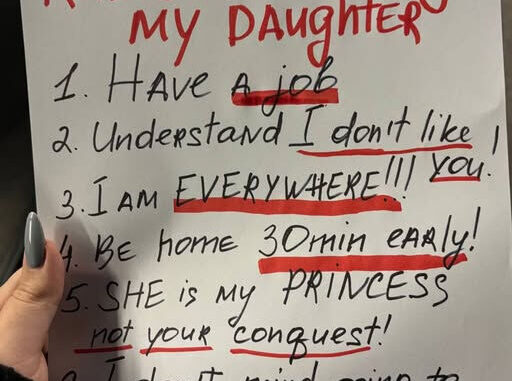 MY DAUGHTER
1. HAVE A job
2. Understand I don't like
YOU!
3. I AM EVERYWHERE!!!
4. BE home 30min EARly!
5. SHE is my PRINCESS
not your conquest!
I don't mind going to